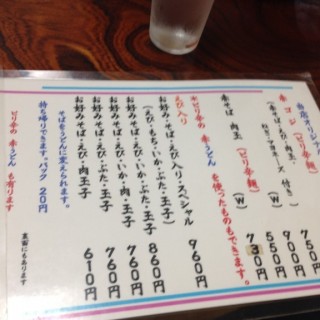 当店オリジナル
赤ゴジ (ピリ辛麺) 750円
(赤そば・えび・肉玉・
ねぎ・マヨネーズ 付き) 900円
(W) 550円
赤そば 肉玉 (ピリ辛麺) 730円
(W)
※ピリ辛の 赤うどん を使ったものもできます。
えび入り
お好み・そば・えび入り・スペシャル 960円
(えび・もち・いか・ぶた・玉子)
お好みそば・えび・いか・ぶた・玉子 860円
お好みそば・えび・いか・肉・玉子 760円
お好みそば・えび・ぶた・玉子 760円
お好みそば・えび・肉・玉子 610円
そばをうどんに変えられます。
持ち帰りできます。パック 20円
ピリ辛の 赤うどん も有ります
裏面にもあります